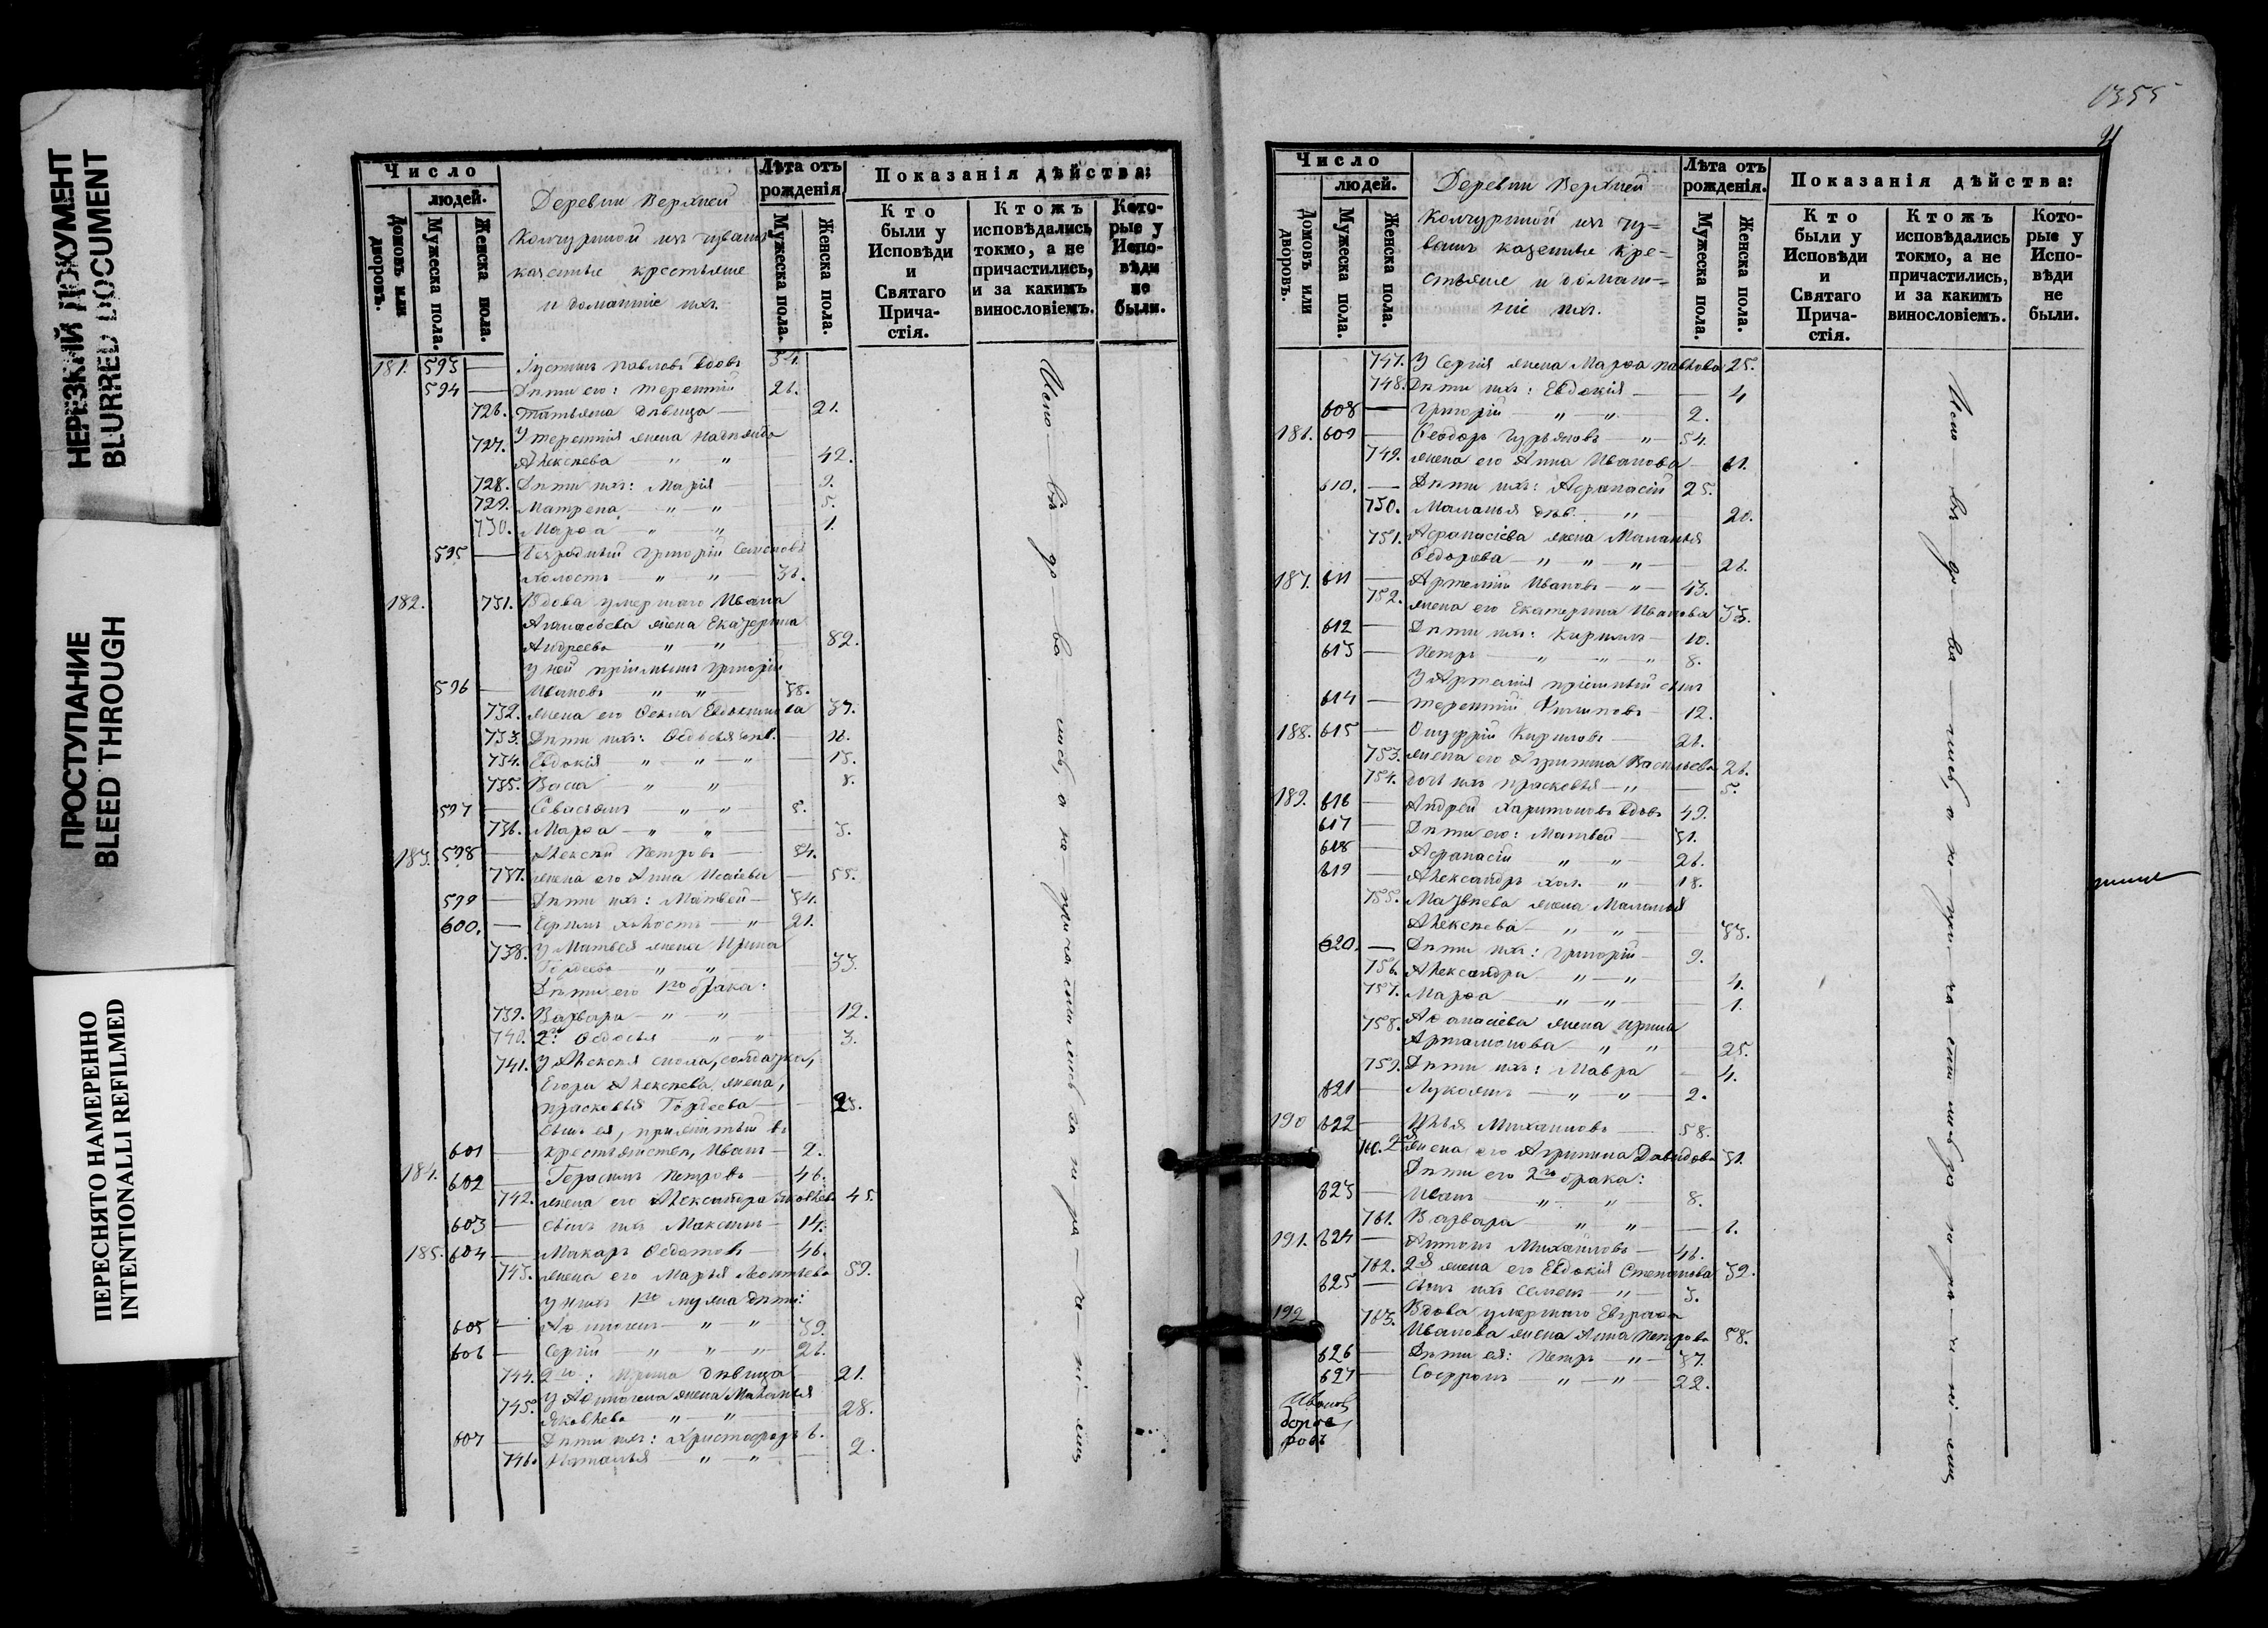 НЕРЕЗКИЙ ДОКУМЕНТ
BLURRED DOCUMENT
ПРОСТУПАНИЕ
BLEED THROUGH
ПЕРЕСНЯТО НАМЕРЕННО
INTENTIONALLI REFILMED
Число
людей.
Домовъ или дворовъ.
Мужеска пола.
Женска пола.
Деревни Верхней
изъ чувашъ
казенные крестьяне
и домашніе ихъ.
Лѣта отъ рожденія
Мужеска пола.
Женска пола.
Показанія дѣйства:
Кто были у Исповѣди и Святаго Причастія.
Ктожъ исповѣдались токмо, а не причастились, и за какимъ винословіемъ.
Которые у Исповѣди не были.
181. 593 — Іустинъ Павловъ вдовъ 54.
594 — Дѣти его: Терентій 26.
726. Татьяна дѣвица — 21.
727. У Терентія жена
Алексѣева — " — " — 42.
728. Дѣти ихъ: Марія — 9.
729. Матрена — " — " 5.
730. Марѳа — " — " 1.
595 — Григорій Семеновъ
холостъ — " — " — 36.
182. 731. Вдова умершаго Ивана
жена Екатерина
Андреева " — " — 82.
у ней пріемышъ Григорій
596 — Ивановъ — " — " — 38.
732. жена его Ѳекла Евдокимова 37.
733. Дѣти ихъ: Ѳедосья дѣв. — 16.
734. Евдокія " — " — " — 13.
735. Васса " — " 8.
597 — Севастьянъ " — " — 5.
736. Марѳа — " — " — 3.
183. 598 — Алексѣй Петровъ — 54.
737. жена его Анна Исаіева — 55.
599 — Дѣти ихъ: Матвей — 34.
600. — Ефимъ холостъ — " — 21.
738. У Матвея жена Ирина
Гордеева — " — " — 33.
Дѣти его 1го брака:
739. Варвара — " — " — 12.
740. 2го Ѳедосья — " — " 3.
741. У Алексѣя сноха, солдатка,
Егора Алексѣева жена,
Прасковья Гордеева — 23.
Сынъ ея, прижитый въ
601 — крестьянствѣ, Иванъ — 2.
184. 602 — Герасимъ Петровъ — 46.
742. жена его Александра Яковлева 45.
603 — Сынъ ихъ Максимъ — 14.
185. 604 — Макаръ Ѳедотовъ — 46.
743. жена его Марья Леонтьева 59.
У нихъ 1го мужа дѣти:
605 — — " — " 39.
606 — Сергій — " — " — " 26.
744. 2го: Ирина дѣвица 21.
745. жена Маланья
Яковлева " — " — 28.
607 — Дѣти ихъ: Христофоръ 6.
746. Наталья — " — " — 2.
Исповѣдывались, а не причастились за нерачéніемъ
1355
91
Число
людей.
Домовъ или дворовъ.
Мужеска пола.
Женска пола.
Деревни Верхней
изъ чу-
вашъ казенные кре-
стьяне и домаш-
ніе ихъ.
Лѣта отъ рожденія.
Мужеска пола.
Женска пола.
Показанія дѣйства:
Кто были у Исповѣди и Святаго Причастія.
Ктожъ исповѣдались токмо, а не причастились, и за какимъ винословіемъ.
Которые у Исповѣди не были.
747. У Сергія жена Марѳа Павлова 25.
748. Дѣти ихъ: Евдокія — 4
608 — Григорій — " — " 2.
186. 609 — Ѳеодоръ Гурьяновъ — " — 54.
749. жена его Анна Иванова — 61.
610. — Дѣти ихъ: Афанасій 25.
750. Маланья дѣв. — " — 20.
751. Афанасіева жена Маланья
Ѳедорова — " — " — " — 26.
187. 611 — Артемій Ивановъ — " — 43.
752. жена его Екатерина Иванова 33.
612 — Дѣти ихъ: Кириллъ — 10.
613 — Петръ — " — " — " 8.
У Артемія пріемный сынъ
614 — Терентій Филиповъ — 12.
188. 615 — Онуфрій Кириловъ — 26.
753. жена его Агрипина Васильева 26.
754. дочь ихъ Прасковья — " — 5.
189. 616 — Андрей Харитоновъ вдовъ 49.
617 — Дѣти его: Матвей — 31.
618 — Афанасій " — " — 26.
619 — Александръ хол. — " — 18.
755. Матвѣева жена Маланья
Алексѣева — " — " — 33.
620. — Дѣти ихъ: Григорій — 9.
756. Александра — " — " — 4.
757. Марѳа — " — " — 1.
758. Аѳанасіева жена Ирина
Артамонова — " — " — 25.
759. Дѣти ихъ: Мавра — 4.
621 — Лукоянъ — " — " — 2.
190 622 — Илья Михаиловъ — 58.
760. 2я жена его Агрипина Давидова 51.
Дѣти его 2го брака:
623 — Иванъ — " — " — 8.
761. Варвара — " — " — 6.
191. 624 — Антонъ Михайловъ — 46.
762. 2я жена его Евдокія Степанова 32.
625 — Сынъ ихъ Семенъ — " — 3.
192 763. Вдова умершаго Евграфа
Иванова жена Анна Петрова 58.
626 — Дѣти ея: Петръ — " — 37.
627 — Софронъ — " — " — 22.
Исповѣдывались, а не причастились по нераченіемъ